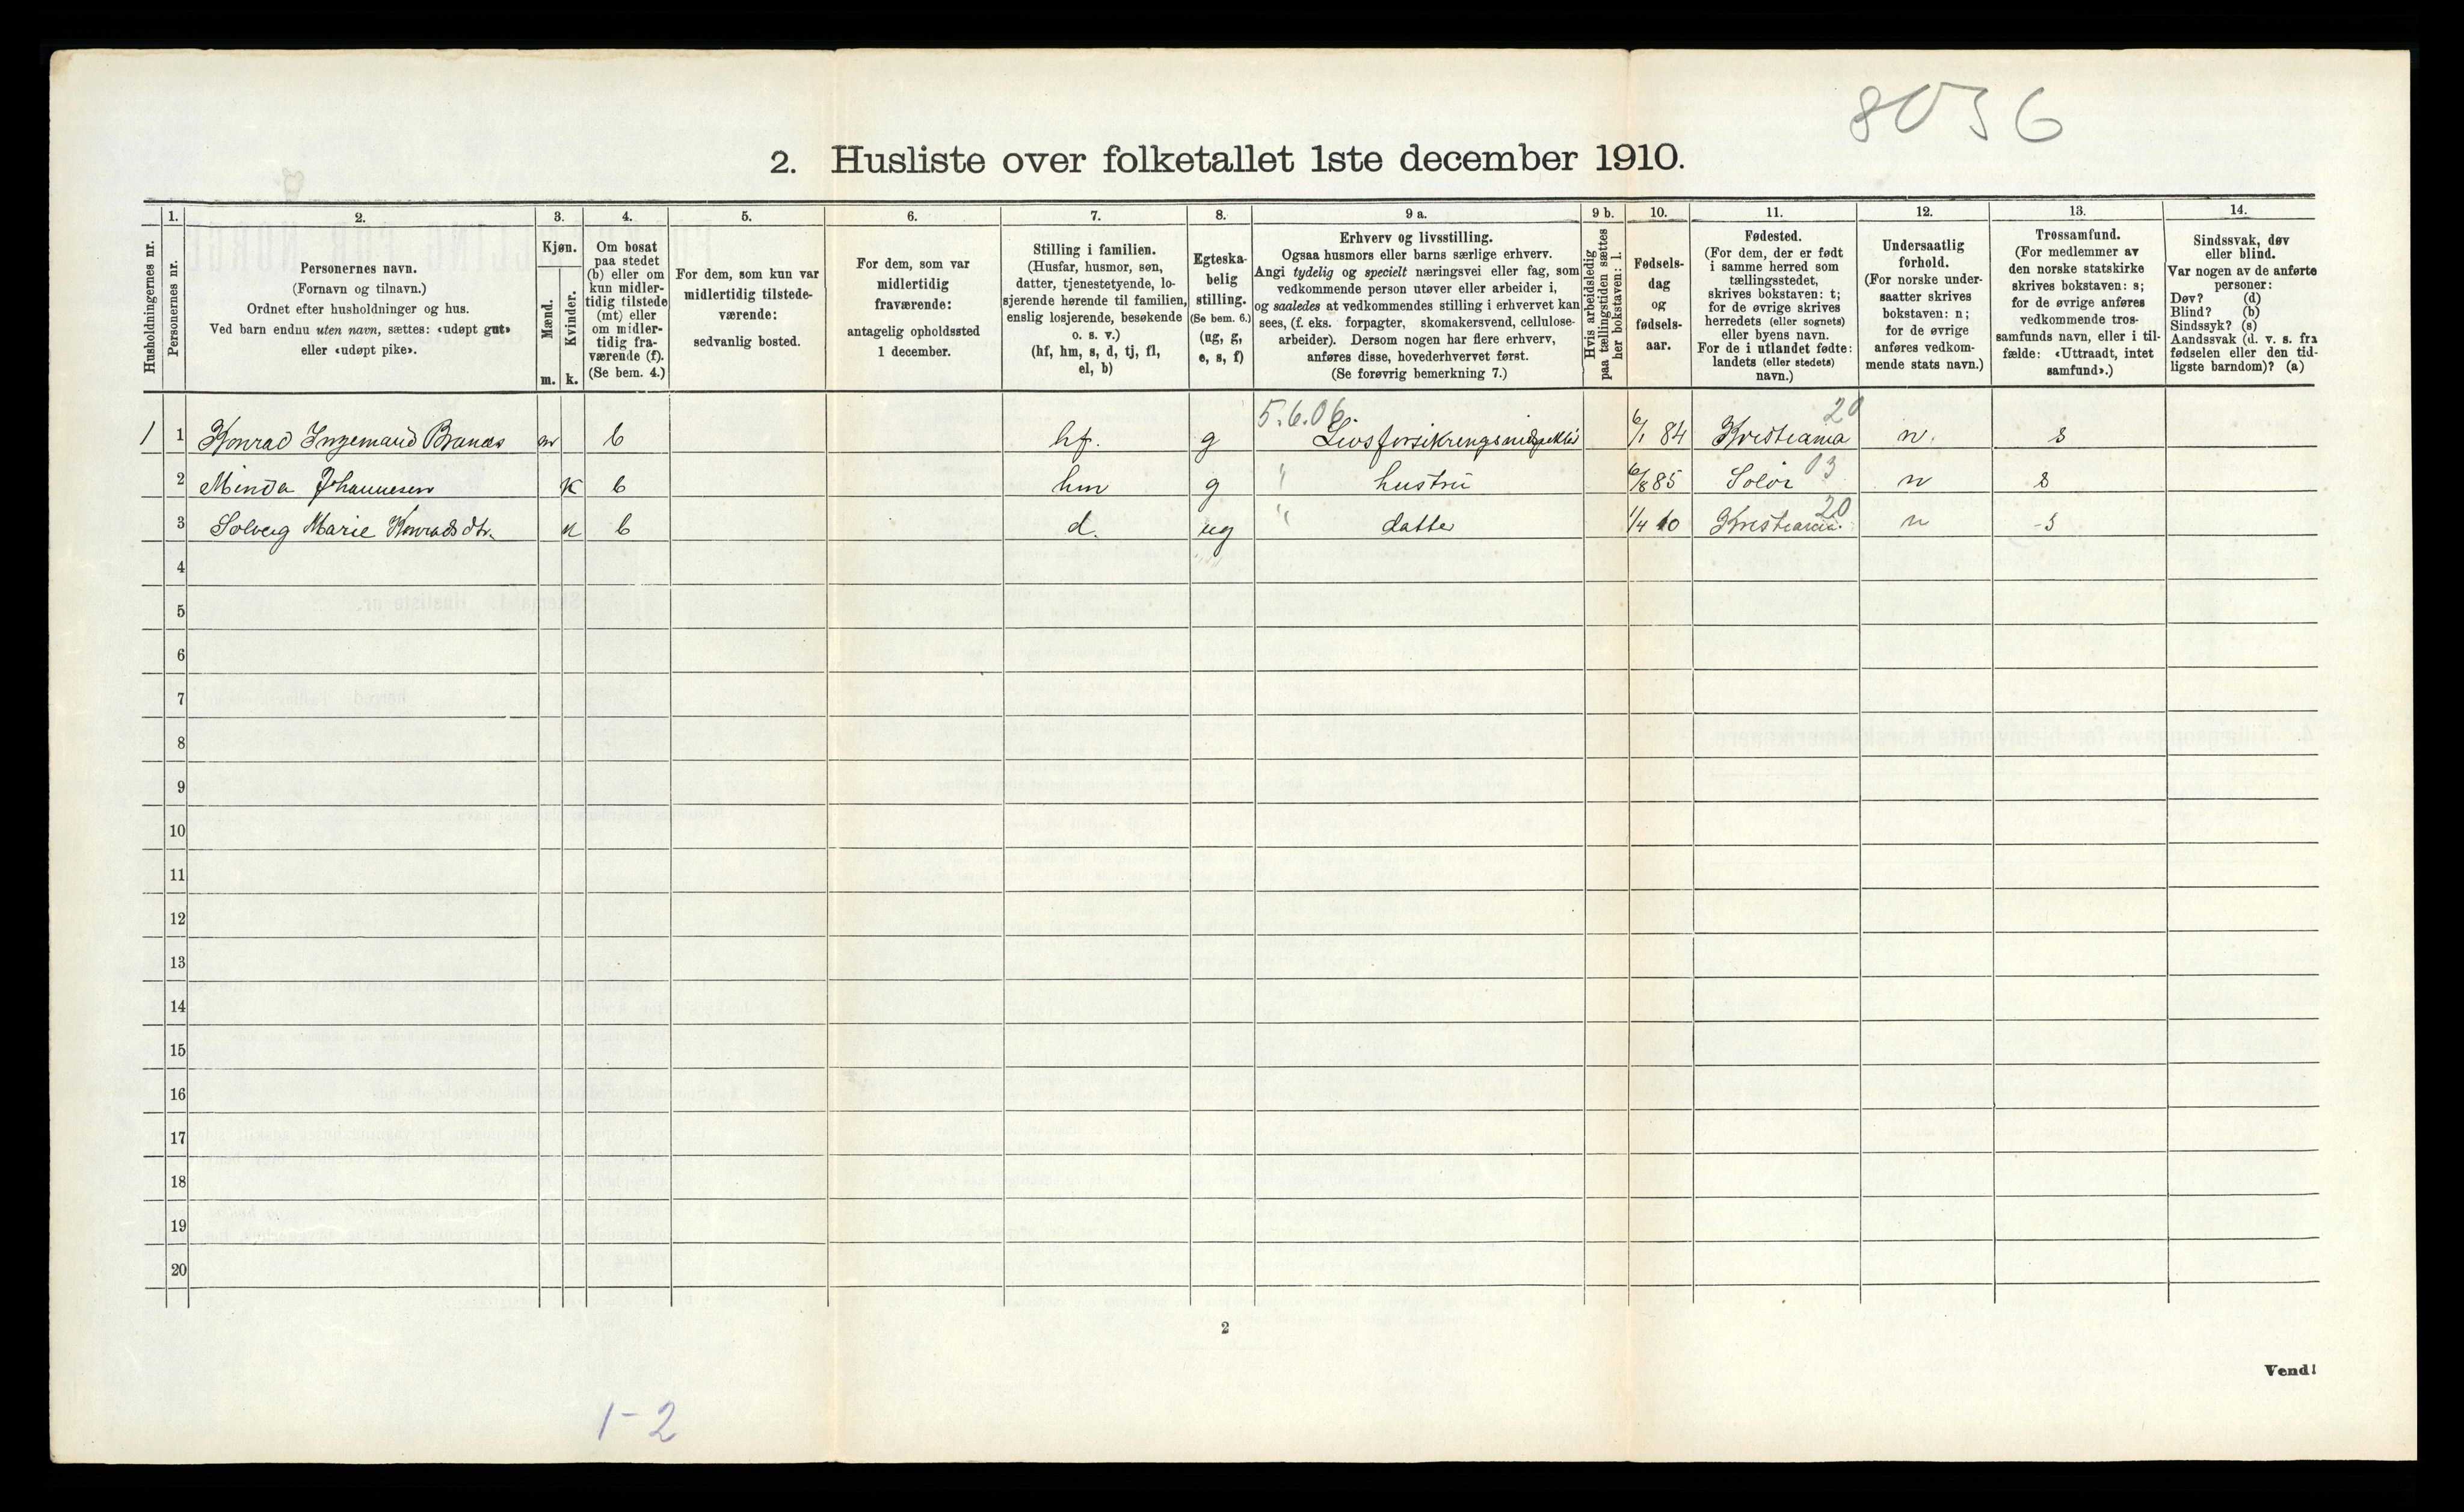 8036
2. Husliste over folketallet 1ste december 1910.
Husholdningernes nr.
1.
Personernes nr.
2.
Personernes navn.
(Fornavn og tilnavn.)
Ordnet efter husholdninger og hus.
Ved barn endnu uten navn, sættes: «udøpt gut»
eller «udøpt pike».
3.
Kjøn.
Mænd.
Kvinder.
m. k.
4.
Om bosat
paa stedet
(b) eller om
kun midler-
tidig tilstede
(mt) eller
om midler-
tidig fra-
værende (f).
(Se bem. 4.)
5.
For dem, som kun var
midlertidig tilstede-
værende:
sedvanlig bosted.
6.
For dem, som var
midlertidig
fraværende:
antagelig opholdssted
1 december.
7.
Stilling i familien.
(Husfar, husmor, søn,
datter, tjenestetyende, lo-
sjerende hørende til familien,
enslig losjerende, besøkende
o. s. v.)
(hf, hm, s, d, tj, fl,
el, b)
8.
Egteska-
belig
stilling.
(Se bem. 6.)
(ug, g,
e, s, f)
9 a.
Erhverv og livsstilling.
Ogsaa husmors eller barns særlige erhverv.
Angi tydelig og specielt næringsvei eller fag, som
vedkommende person utøver eller arbeider i,
og saaledes at vedkommendes stilling i erhvervet kan
sees, (f. eks. forpagter, skomakersvend, cellulose-
arbeider). Dersom nogen har flere erhverv,
anføres disse, hovederhvervet først.
(Se forøvrig bemerkning 7.)
9 b.
Hvis arbeidsledig
paa tællingstiden sættes
her bokstaven: l.
10.
Fødsels-
dag
og
fødsels-
aar.
11.
Fødested.
(For dem, der er født
i samme herred som
tællingsstedet,
skrives bokstaven: t;
for de øvrige skrives
herredets (eller sognets)
eller byens navn.
For de i utlandet fødte:
landets (eller stedets)
navn.)
12.
Undersaatlig
forhold.
(For norske under-
saatter skrives
bokstaven: n;
for de øvrige
anføres vedkom-
mende stats navn.)
13.
Trossamfund.
(For medlemmer av
den norske statskirke
skrives bokstaven: s;
for de øvrige anføres
vedkommende tros-
samfunds navn, eller i til-
fælde: «Uttraadt, intet
samfund».)
14.
Sindssvak, døv
eller blind.
Var nogen av de anførte
personer:
Døv? (d)
Blind? (b)
Sindssyk? (s)
Aandssvak (d. v. s. fra
fødselen eller den tid-
ligste barndom)? (a)
5.6.06 20
1 1 Konrad Ingemand m b hf. g 6/1 84 Kristiania n. s
2 Minda Johannesen k b hm g " hustru 6/8 85 Solör 03 n s
3 Solveig Marie Konradsdtr. k b d. ug " datter 1/4 10 Kristiania 20 n s
4
5
6
7
8
9
10
11
12
13
14
15
16
17
18
19
20
2
Vend!
1-2